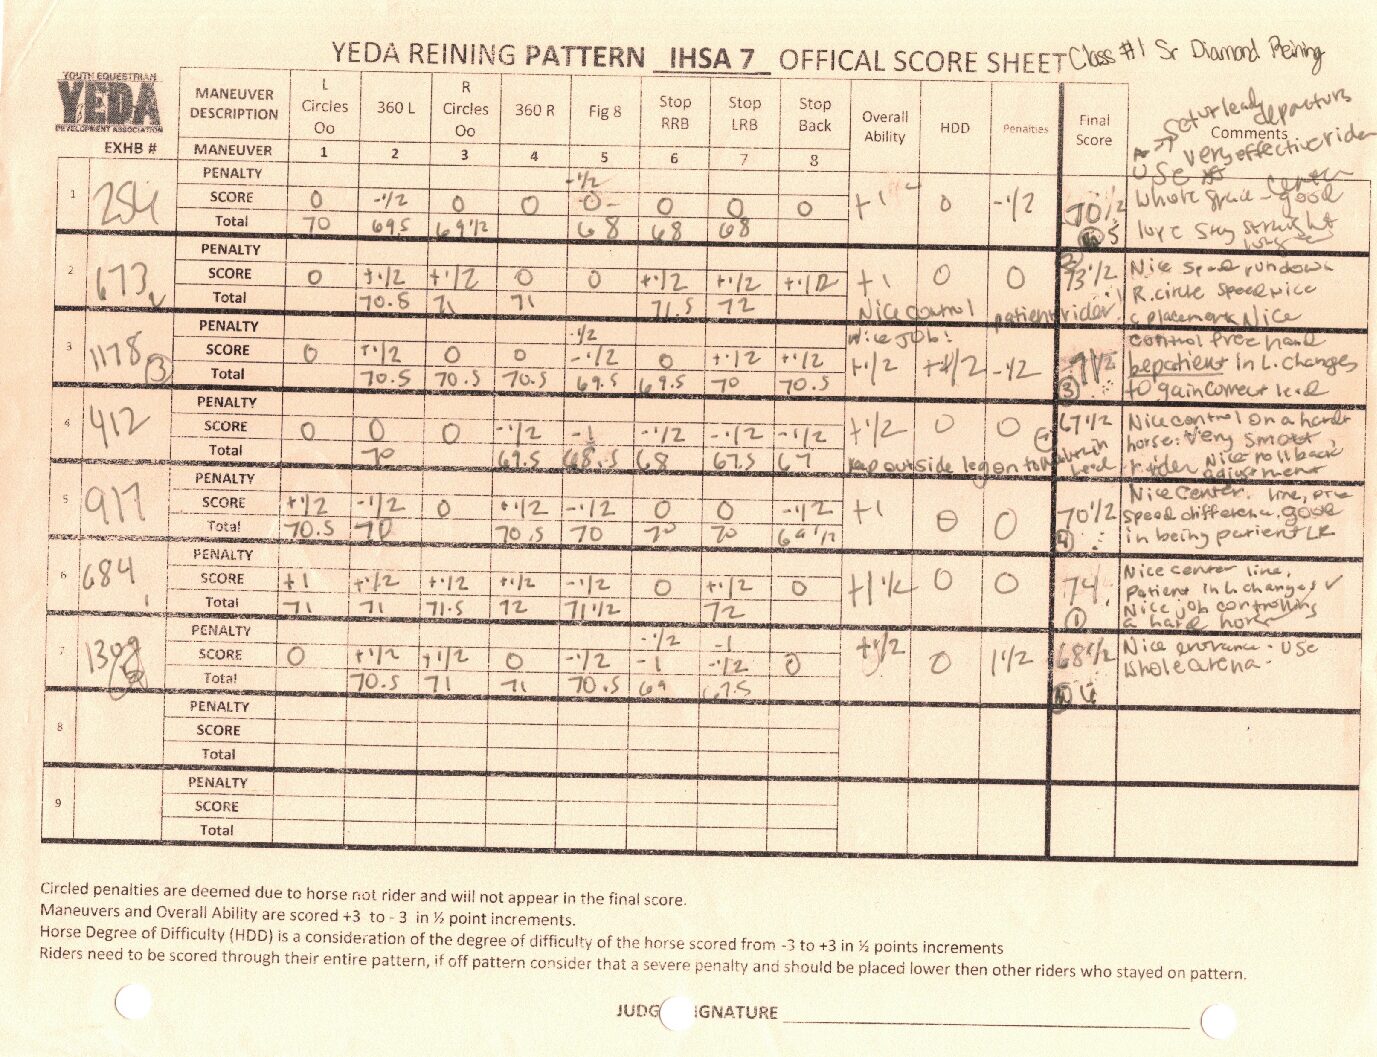 YEDA REINING PATTERN IHSA 7 OFFICAL SCORE SHEET Class #1 Sr Diamond Reining
YOUTH EQUESTRIAN
YEDA
DEVELOPMENT ASSOCIATION
EXHB #
MANEUVER DESCRIPTION L Circles Oo 360 L R Circles Oo 360 R Fig 8 Stop RRB Stop LRB Stop Back Overall Ability HDD Penalties Final Score Comments
MANEUVER 1 2 3 4 5 6 7 8
very effective rider
USE
1 254
PENALTY -1/2
SCORE 0 -1/2 0 0 0 0 0 0 +1 0 -1/2 70 1/2
Total 70 69.5 69 1/2 68 68 68 5
good
lope stay straight
2 673
PENALTY
SCORE 0 +1/2 +1/2 0 0 +1/2 +1/2 +1/2 +1 0 0 73 1/2
Total 70.5 71 71 71.5 72
Nice control patient rider!
Nice speed rundown
R. circle speed nice
placement Nice
3 1178 3
PENALTY -1/2
SCORE 0 +1/2 0 0 -1/2 0 +1/2 +1/2 +1/2 +1/2 -1/2 71 1/2
Total 70.5 70.5 70.5 69.5 69.5 70 70.5 3
Nice JOb!
control free hand
be patient in L. changes
to gain correct lead
4 412
PENALTY
SCORE 0 0 0 -1/2 -1 -1/2 -1/2 -1/2 +1/2 0 0 67 1/2
Total 70 69.5 68.5 68 67.5 67
keep outside leg on to lead
Nice control on a hard
horse. Very smart
rider Nice rollback
adjustment
5 917
PENALTY
SCORE +1/2 -1/2 0 +1/2 -1/2 0 0 -1/2 +1 0 0 70 1/2
Total 70.5 70 70.5 70 70 70 69 1/2 4
Nice center line,
speed difference, good
in being patient LR
6 684 1
PENALTY
SCORE +1 +1/2 +1/2 +1/2 -1/2 0 +1/2 0 +1 1/2 0 0 74
Total 71 71 71.5 72 71 1/2 72 1
Nice center line,
patient in L. changes ✓
Nice job controlling
a hard horse
7
PENALTY -1/2 -1
SCORE 0 +1/2 +1/2 0 -1/2 -1 -1/2 0 +1/2 0 1 1/2 68 1/2
Total 70.5 71 71 70.5 69 67.5
Nice entrance. USE
whole arena.
8
PENALTY
SCORE
Total
9
PENALTY
SCORE
Total
Circled penalties are deemed due to horse not rider and will not appear in the final score.
Maneuvers and Overall Ability are scored +3 to - 3 in ½ point increments.
Horse Degree of Difficulty (HDD) is a consideration of the degree of difficulty of the horse scored from -3 to +3 in ½ points increments
Riders need to be scored through their entire pattern, if off pattern consider that a severe penalty and should be placed lower then other riders who stayed on pattern.
JUDG IGNATURE